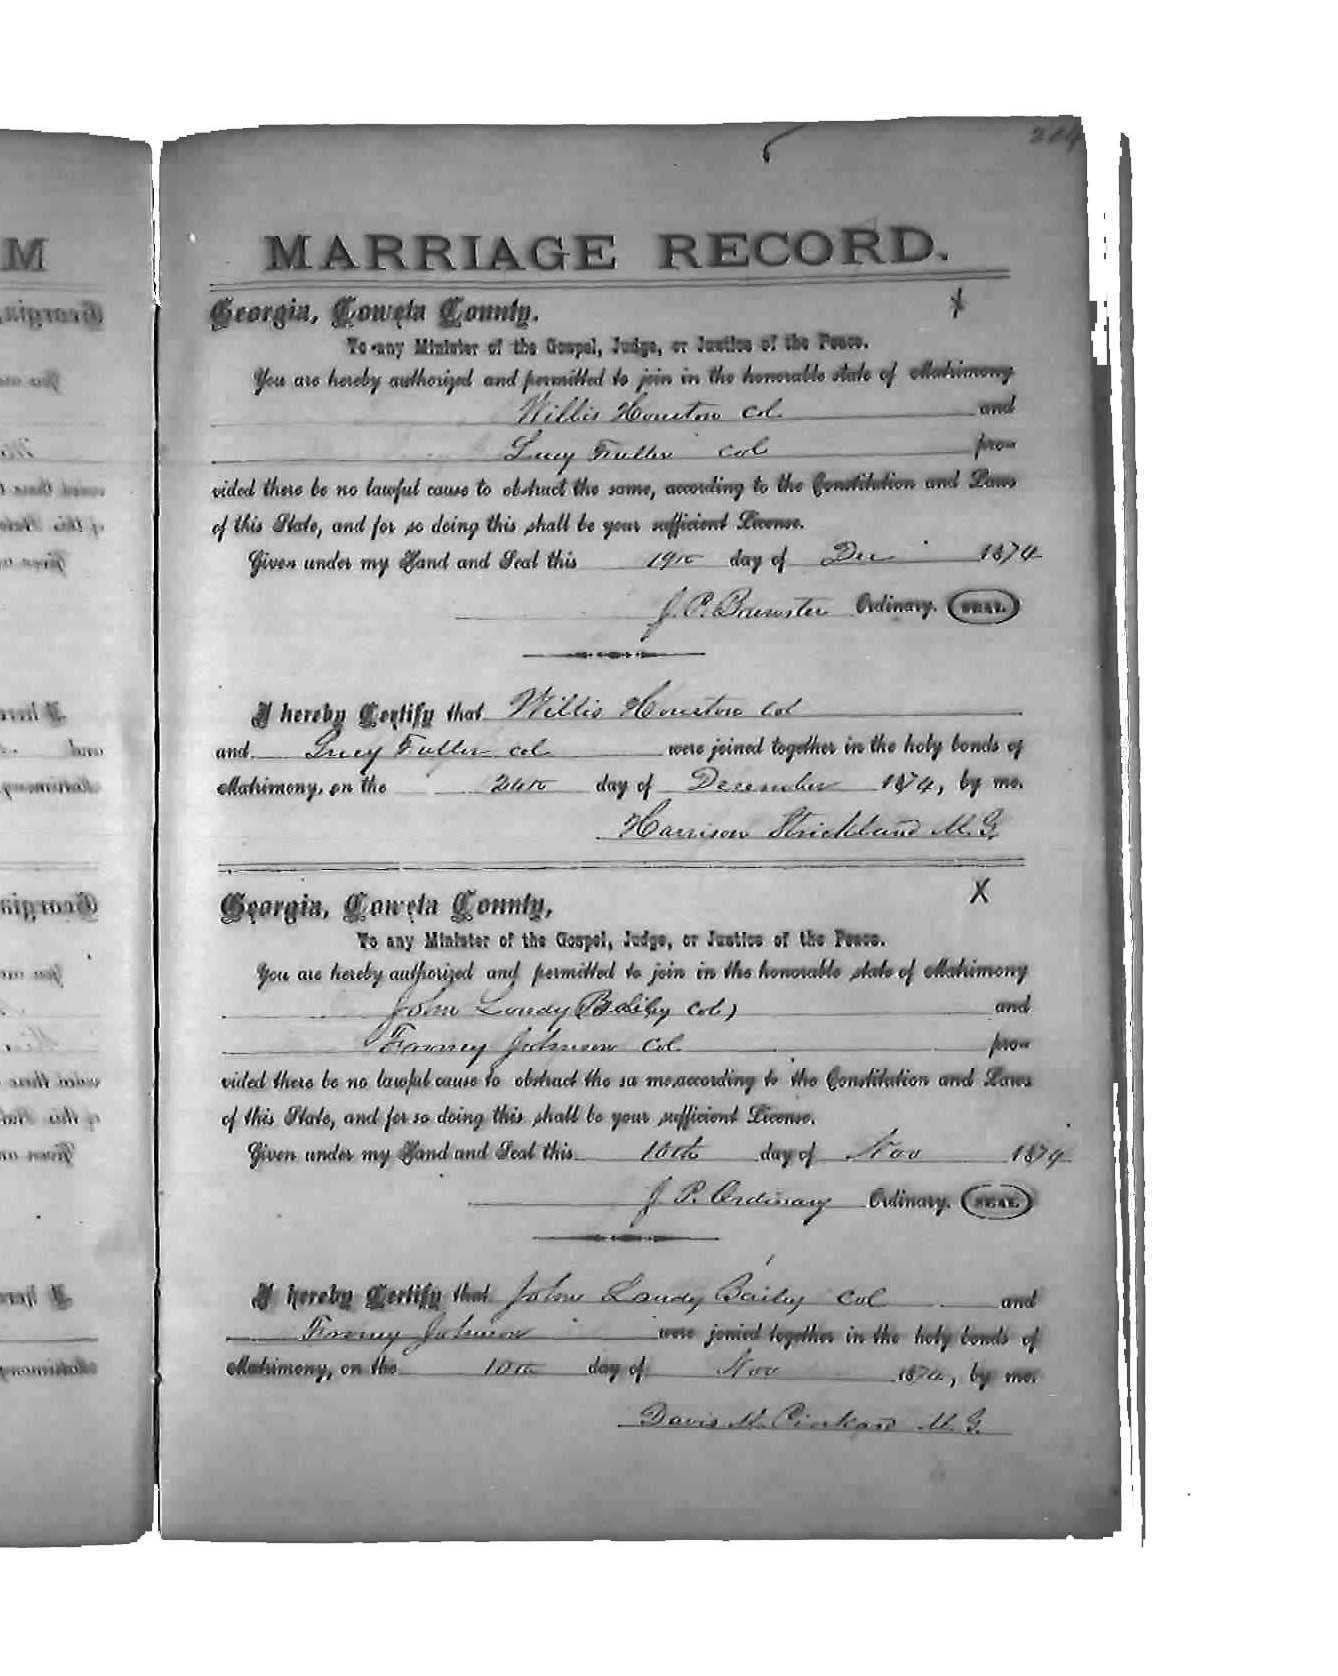 204
MARRIAGE RECORD.
Georgia, Coweta County. X
To any Minister of the Gospel, Judge, or Justice of the Peace.
You are hereby authorized and permitted to join in the honorable state of Matrimony
Willis Houston col and
Lucy Fuller col pro-
vided there be no lawful cause to obstruct the same, according to the Constitution and Laws
of this State, and for so doing this shall be your sufficient License.
Given under my Hand and Seal this 19th day of Dec 1874
J. P. Brewster Ordinary. SEAL.
I hereby Certify that Willis Houston col
and Lucy Fuller col were joined together in the holy bonds of
Matrimony, on the 24th day of December 1874, by me.
Harrison Strickland M. G.
Georgia, Coweta County, X
To any Minister of the Gospel, Judge, or Justice of the Peace.
You are hereby authorized and permitted to join in the honorable state of Matrimony
John Landy (Bailey col) and
Fanney Johnson col pro-
vided there be no lawful cause to obstruct the sa me, according to the Constitution and Laws
of this State, and for so doing this shall be your sufficient License.
Given under my Hand and Seal this 10th day of Nov 1874
J. P. Ordinary Ordinary. SEAL.
I hereby Certify that John Landy Bailey col and
Fanney Johnson were jonied together in the holy bonds of
Matrimony, on the 10th day of Nov 1874, by me.
Davis M. Pinkard M. G.